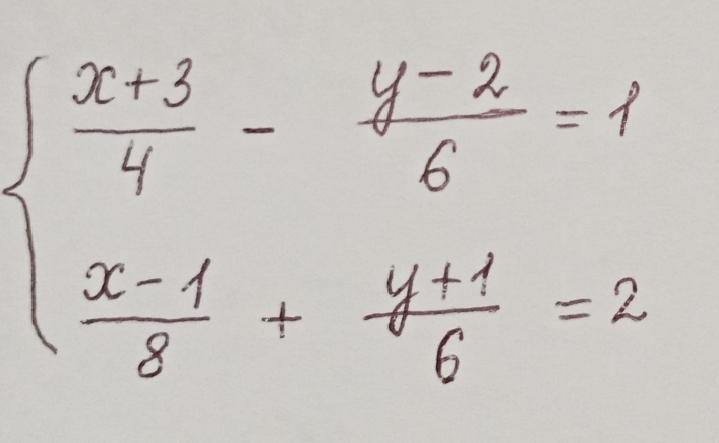 { (x+3)/4 - (y-2)/6 = 1
(x-1)/8 + (y+1)/6 = 2